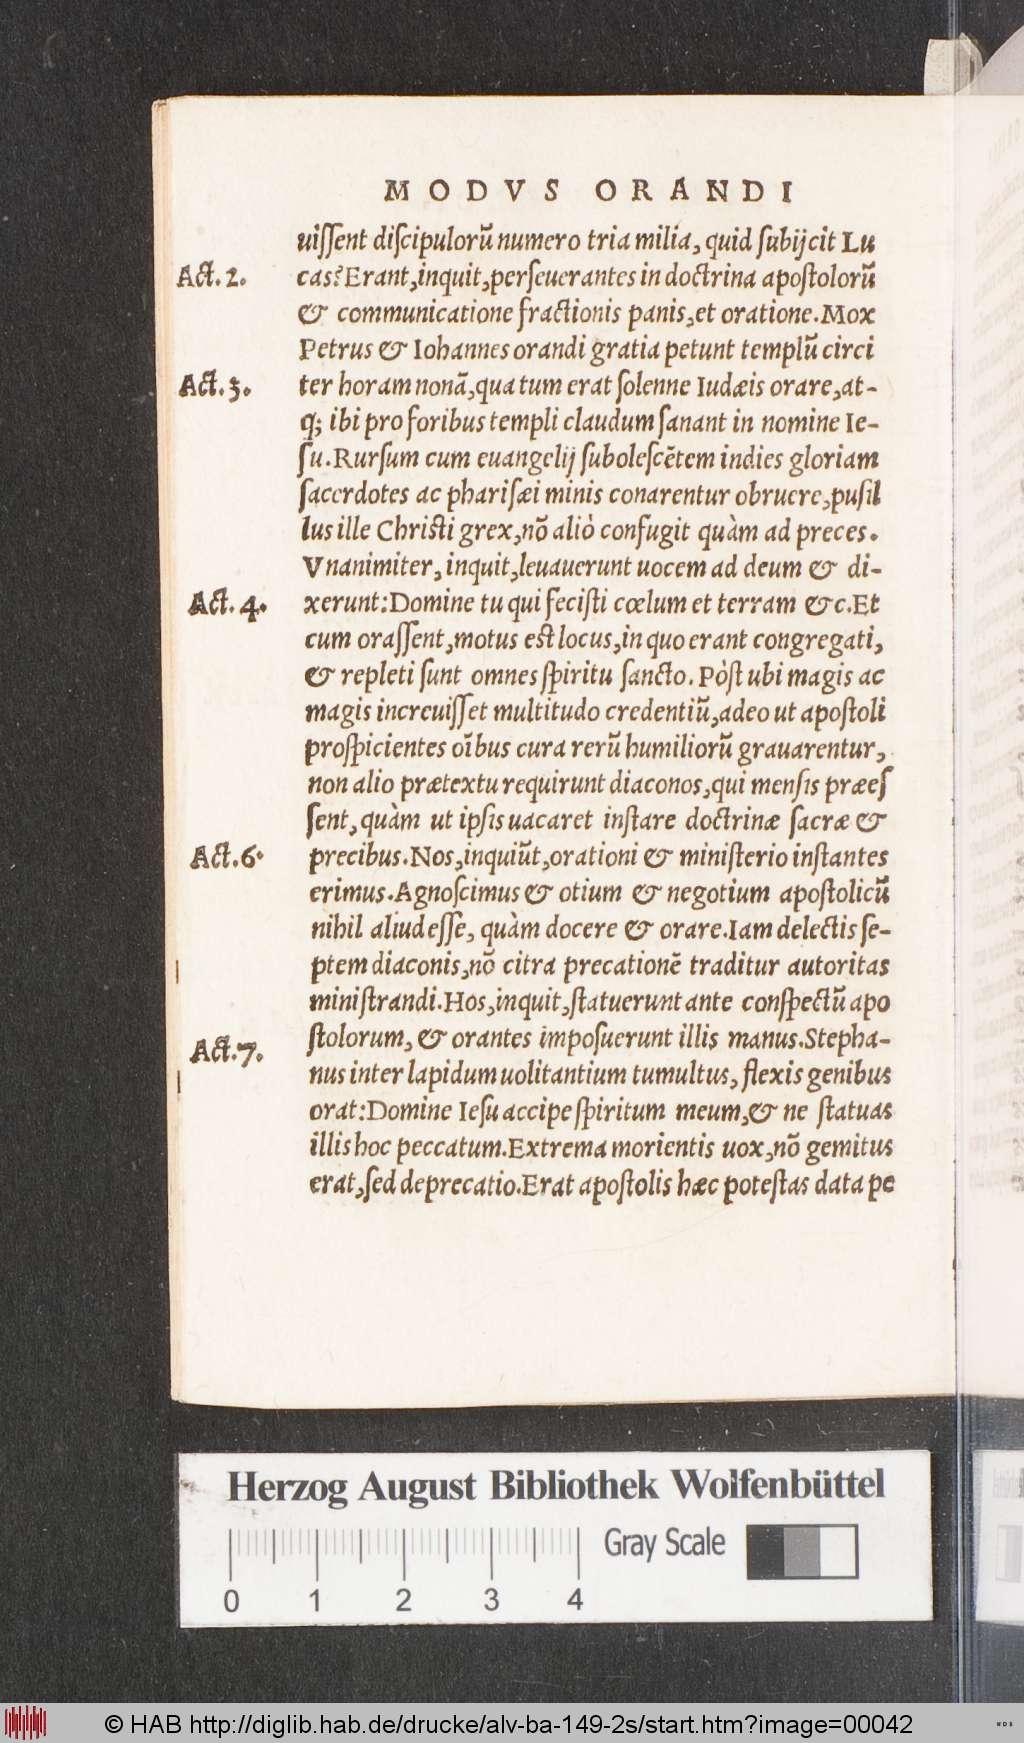 MODVS ORANDI
uiſſent diſcipulorū numero tria milia, quid ſubijcit Lu
Act. 2. cas? Erant, inquit, perſeuerantes in doctrina apoſtolorū
& communicatione fractionis panis, et oratione. Mox
Petrus & Iohannes orandi gratia petunt templū circi
Act. 3. ter horam nonā, qua tum erat ſolenne Iudæis orare, at-
q; ibi pro foribus templi claudum ſanant in nomine Ie-
ſu. Rurſum cum euangelij ſuboleſcētem indies gloriam
ſacerdotes ac phariſæi minis conarentur obruere, puſil
lus ille Chriſti grex, nō aliò confugit quàm ad preces.
Vnanimiter, inquit, leuauerunt uocem ad deum & di-
Act. 4. xerunt: Domine tu qui feciſti cœlum et terram &c. Et
cum oraſſent, motus eſt locus, in quo erant congregati,
& repleti ſunt omnes ſpiritu ſancto. Pòſt ubi magis ac
magis increuiſſet multitudo credentiū, adeo ut apoſtoli
proſpicientes oībus cura rerū humiliorū grauarentur,
non alio prætextu requirunt diaconos, qui menſis præeſ
ſent, quàm ut ipſis uacaret inſtare doctrinæ ſacræ &
Act. 6. precibus. Nos, inquiūt, orationi & miniſterio inſtantes
erimus. Agnoſcimus & otium & negotium apoſtolicū
nihil aliud eſſe, quàm docere & orare. Iam delectis ſe-
ptem diaconis, nō citra precationē traditur autoritas
miniſtrandi. Hos, inquit, ſtatuerunt ante conſpectū apo
Act. 7. ſtolorum, & orantes impoſuerunt illis manus. Stepha-
nus inter lapidum uolitantium tumultus, flexis genibus
orat: Domine Ieſu accipe ſpiritum meum, & ne ſtatuas
illis hoc peccatum. Extrema morientis uox, nō gemitus
erat, ſed deprecatio. Erat apoſtolis hæc poteſtas data pe
Herzog August Bibliothek Wolfenbüttel
Gray Scale
0 1 2 3 4
© HAB http://diglib.hab.de/drucke/alv-ba-149-2s/start.htm?image=00042